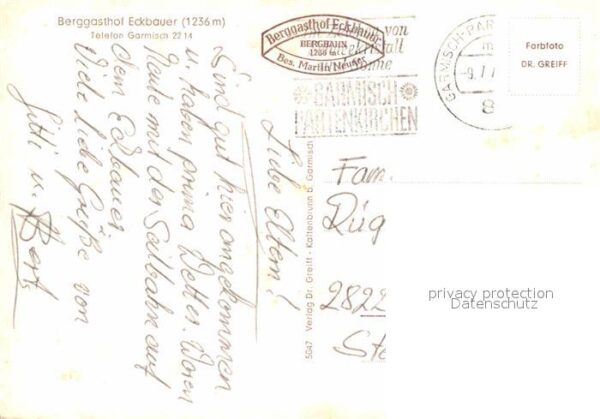 Berggasthof Eckbauer (1236 m)
Telefon Garmisch 2214
Berggasthof Eckbauer
BERGBAHN
1236 m
Bes. Martin Neuner
von
GARMISCH
PARTENKIRCHEN
GARMISCH-PAR
Farbfoto
DR. GREIFF
Liebe Eltern!
Sind gut hier angekommen
u. haben prima Wetter. Waren
Heute mit der Seilbahn auf
dem Eckbauer
Viele liebe Grüße von
Gitti u. Bert
5047 Verlag Dr. Greiff - Kaltenbrunn b. Garmisch
Fam.
Rüg
2822
Ste
privacy protection
Datenschutz